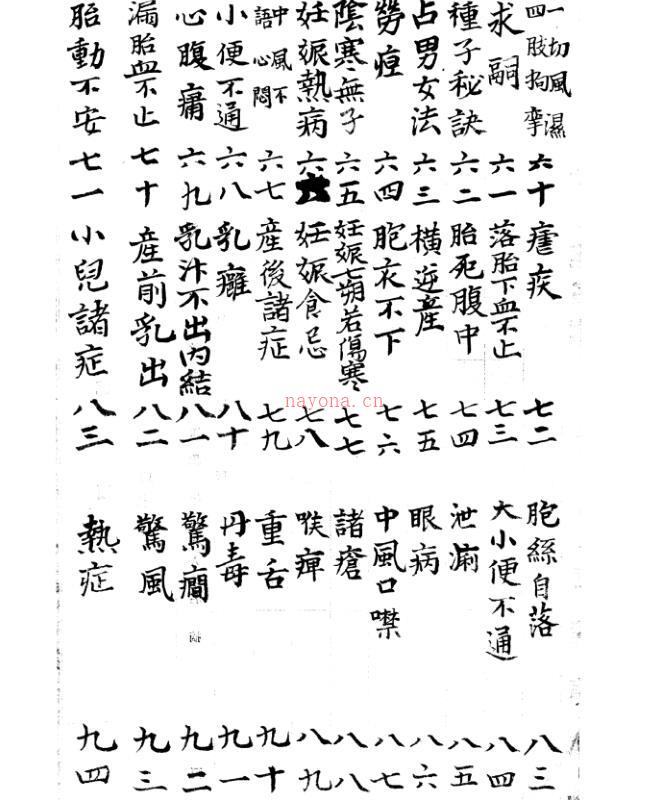 一切風濕
四肢拘攣
六十
求嗣 六一
種子秘訣 六二
占男女法 六三
勞 六四
陰寒無子 六五
妊娠熱病 六六
中風不
語心悶
六七
小便不通 六八
心腹痛 六九
漏胎血不止 七十
胎動不安 七一
瘧疾 七二
落胎下血不止 七三
胎死腹中 七四
橫逆產 七五
胞衣不下 七六
妊娠七朔若傷寒 七七
妊娠食忌 七八
產後諸症 七九
乳癰 八十
乳汁不出內結 八一
產前乳出 八二
小兒諸症 八三
胞絲自落 八三
大小便不通 八四
泄痢 八五
眼病 八六
中風口噤 八七
諸瘡 八八
喉痺 八九
重舌 九十
丹毒 九一
驚癎 九二
驚風 九三
熱症 九四
nayona.cn